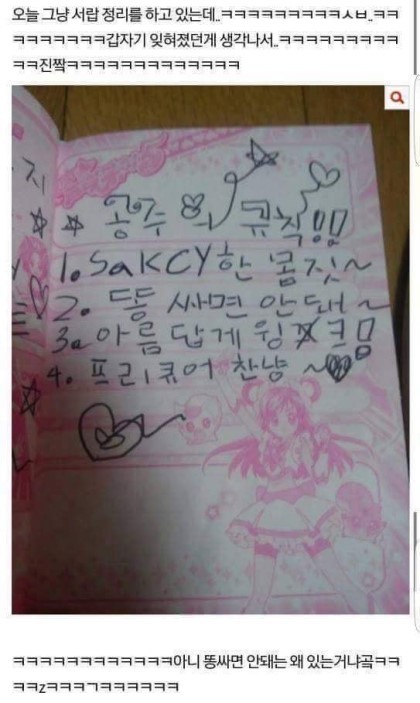 오늘 그냥 서랍 정리를 하고 있는데..ㅋㅋㅋㅋㅋㅋㅋㅋㅋㅅㅂ..ㅋㅋ
ㅋㅋㅋㅋㅋㅋㅋ갑자기 잊혀졌던게 생각나서..ㅋㅋㅋㅋㅋㅋㅋㅋㅋ
ㅋㅋ진짴ㅋㅋㅋㅋㅋㅋㅋㅋㅋㅋㅋㅋㅋ
지
공주의 규칙!!
1. SaKCY한 몸짓~
2. 등 싸면 안돼~
3. 아름답게 윙크!
4. 프리큐어 찬냥~
ㅋㅋㅋㅋㅋㅋㅋㅋㅋㅋㅋㅋ아니 똥싸면 안돼는 왜 있는거냐곸ㅋㅋ
ㅋㅋzㅋㅋㅋㄱㅋㅋㅋㅋㅋㅋ